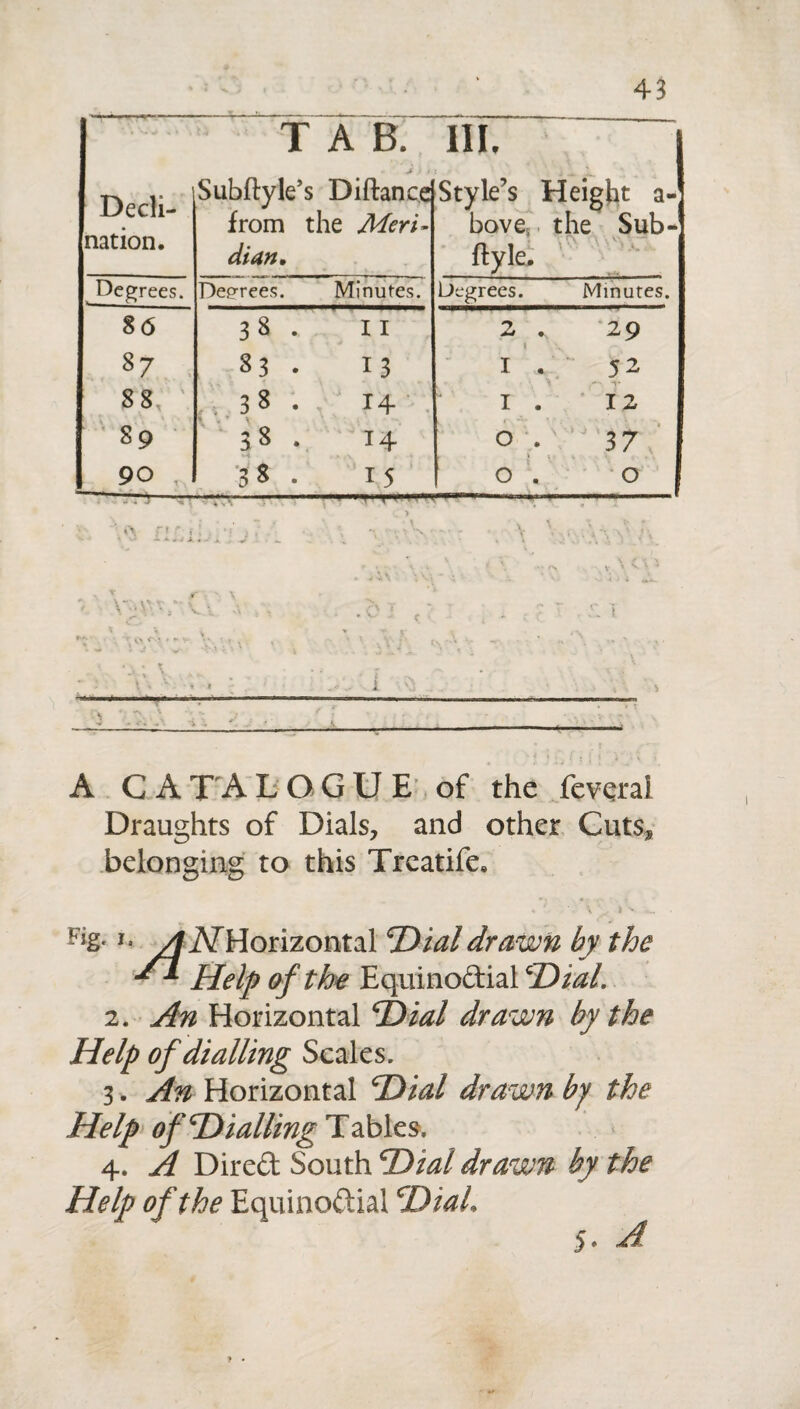 43
TAB. III.
Decli-
nation.
Subſtyle's Diſtance
from the Meri-
dian.
Style's Height a-
bove, the Sub-
ſtyle.
Degrees. Degrees. Minutes. Degrees. Minutes.
86 38 . 11 2 . 29
87 83 . 13 1 . 52
88 38 . 14 1 . 12
89 38 . 14 0 . 37
90 38 . 15 0 . 0
A CATALOGUE of the ſeveral
Draughts of Dials, and other Cuts,
belonging to this Treatiſe.
Fig. 1. AN Horizontal Dial drawn by the
Help of the Equinoctial Dial.
2. An Horizontal Dial drawn by the
Help of dialling Scales.
3. An Horizontal Dial drawn by the
Help of Dialling Tables.
4. A Direct South Dial drawn by the
Help of the Equinoctial Dial.
5. A